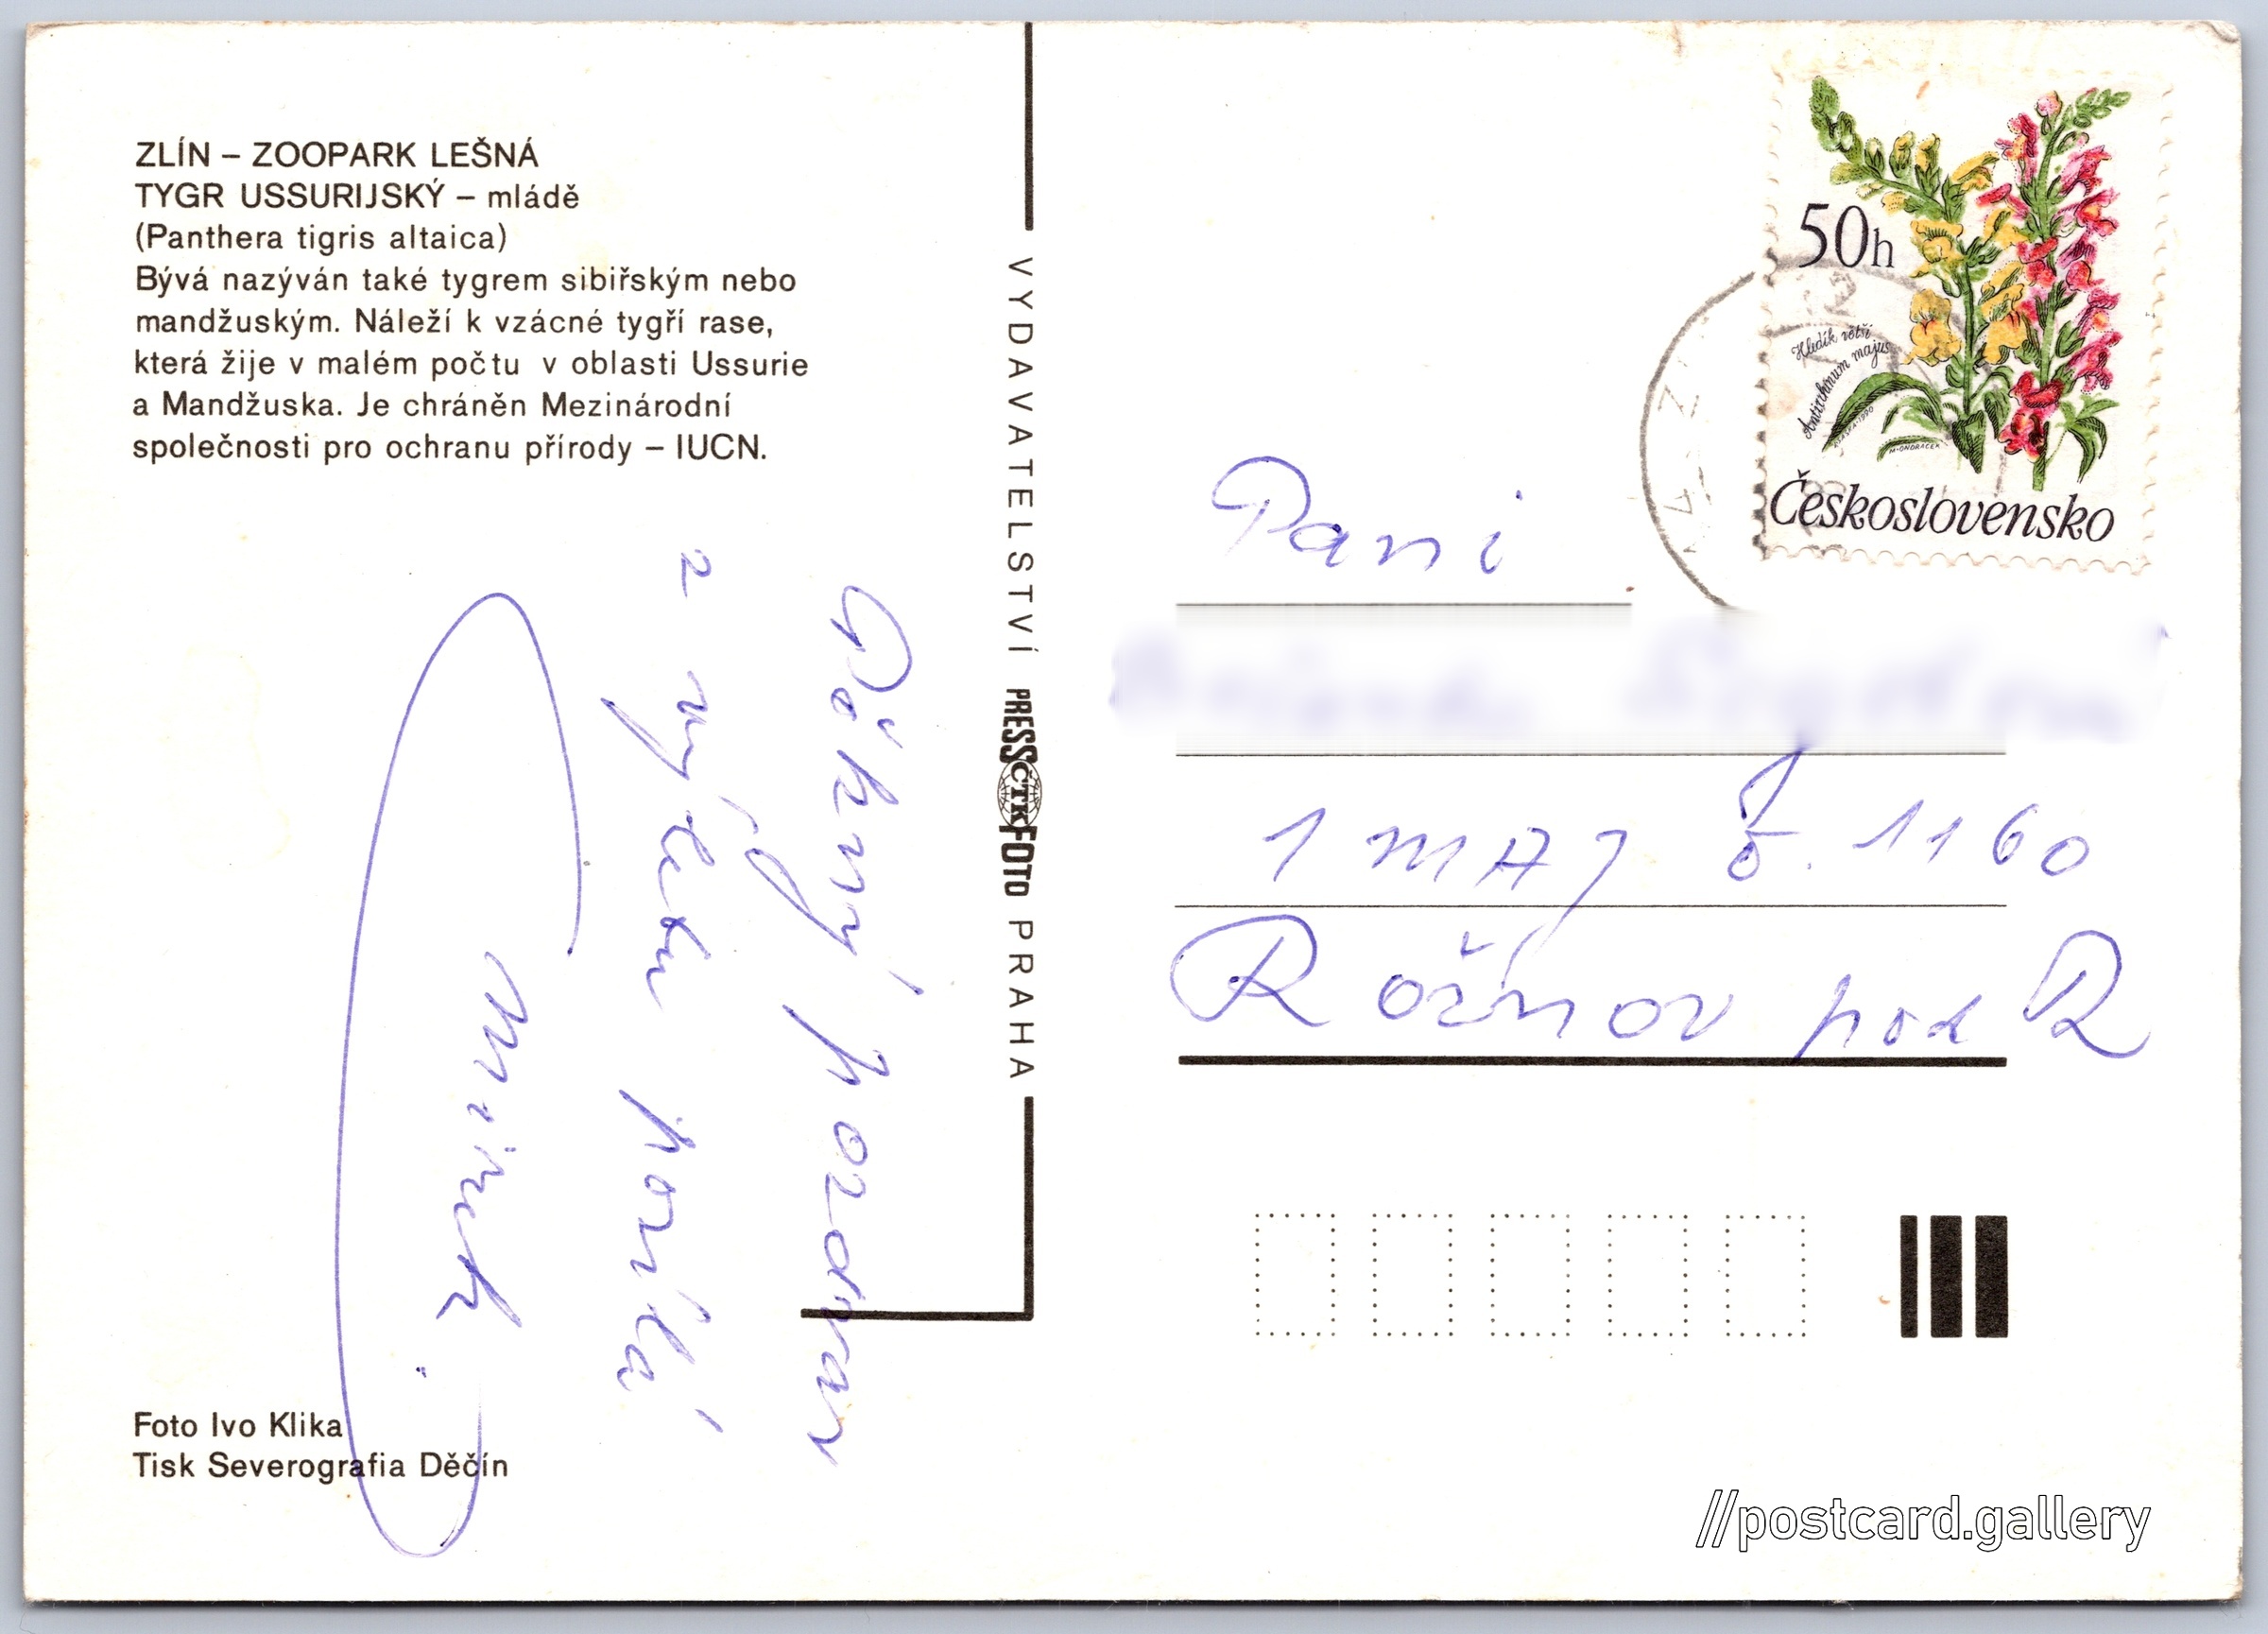 ZLÍN – ZOOPARK LEŠNÁ
TYGR USSURIJSKÝ – mládě
(Panthera tigris altaica)
Bývá nazýván také tygrem sibiřským nebo
mandžuským. Náleží k vzácné tygří rase,
která žije v malém počtu v oblasti Ussurie
a Mandžuska. Je chráněn Mezinárodní
společnosti pro ochranu přírody – IUCN.
Pěkný pozdrav
z výletu posílá
Mirek.
Foto Ivo Klika
Tisk Severografia Děčín
VYDAVATELSTVÍ PRESSFOTO PRAHA
ČTK
50h
Hledík větší
Antirrhinum majus
M. ONDRÁČEK
Československo
Pani
1 MÁJ č. 1160
Rožnov pod R
//postcard.gallery